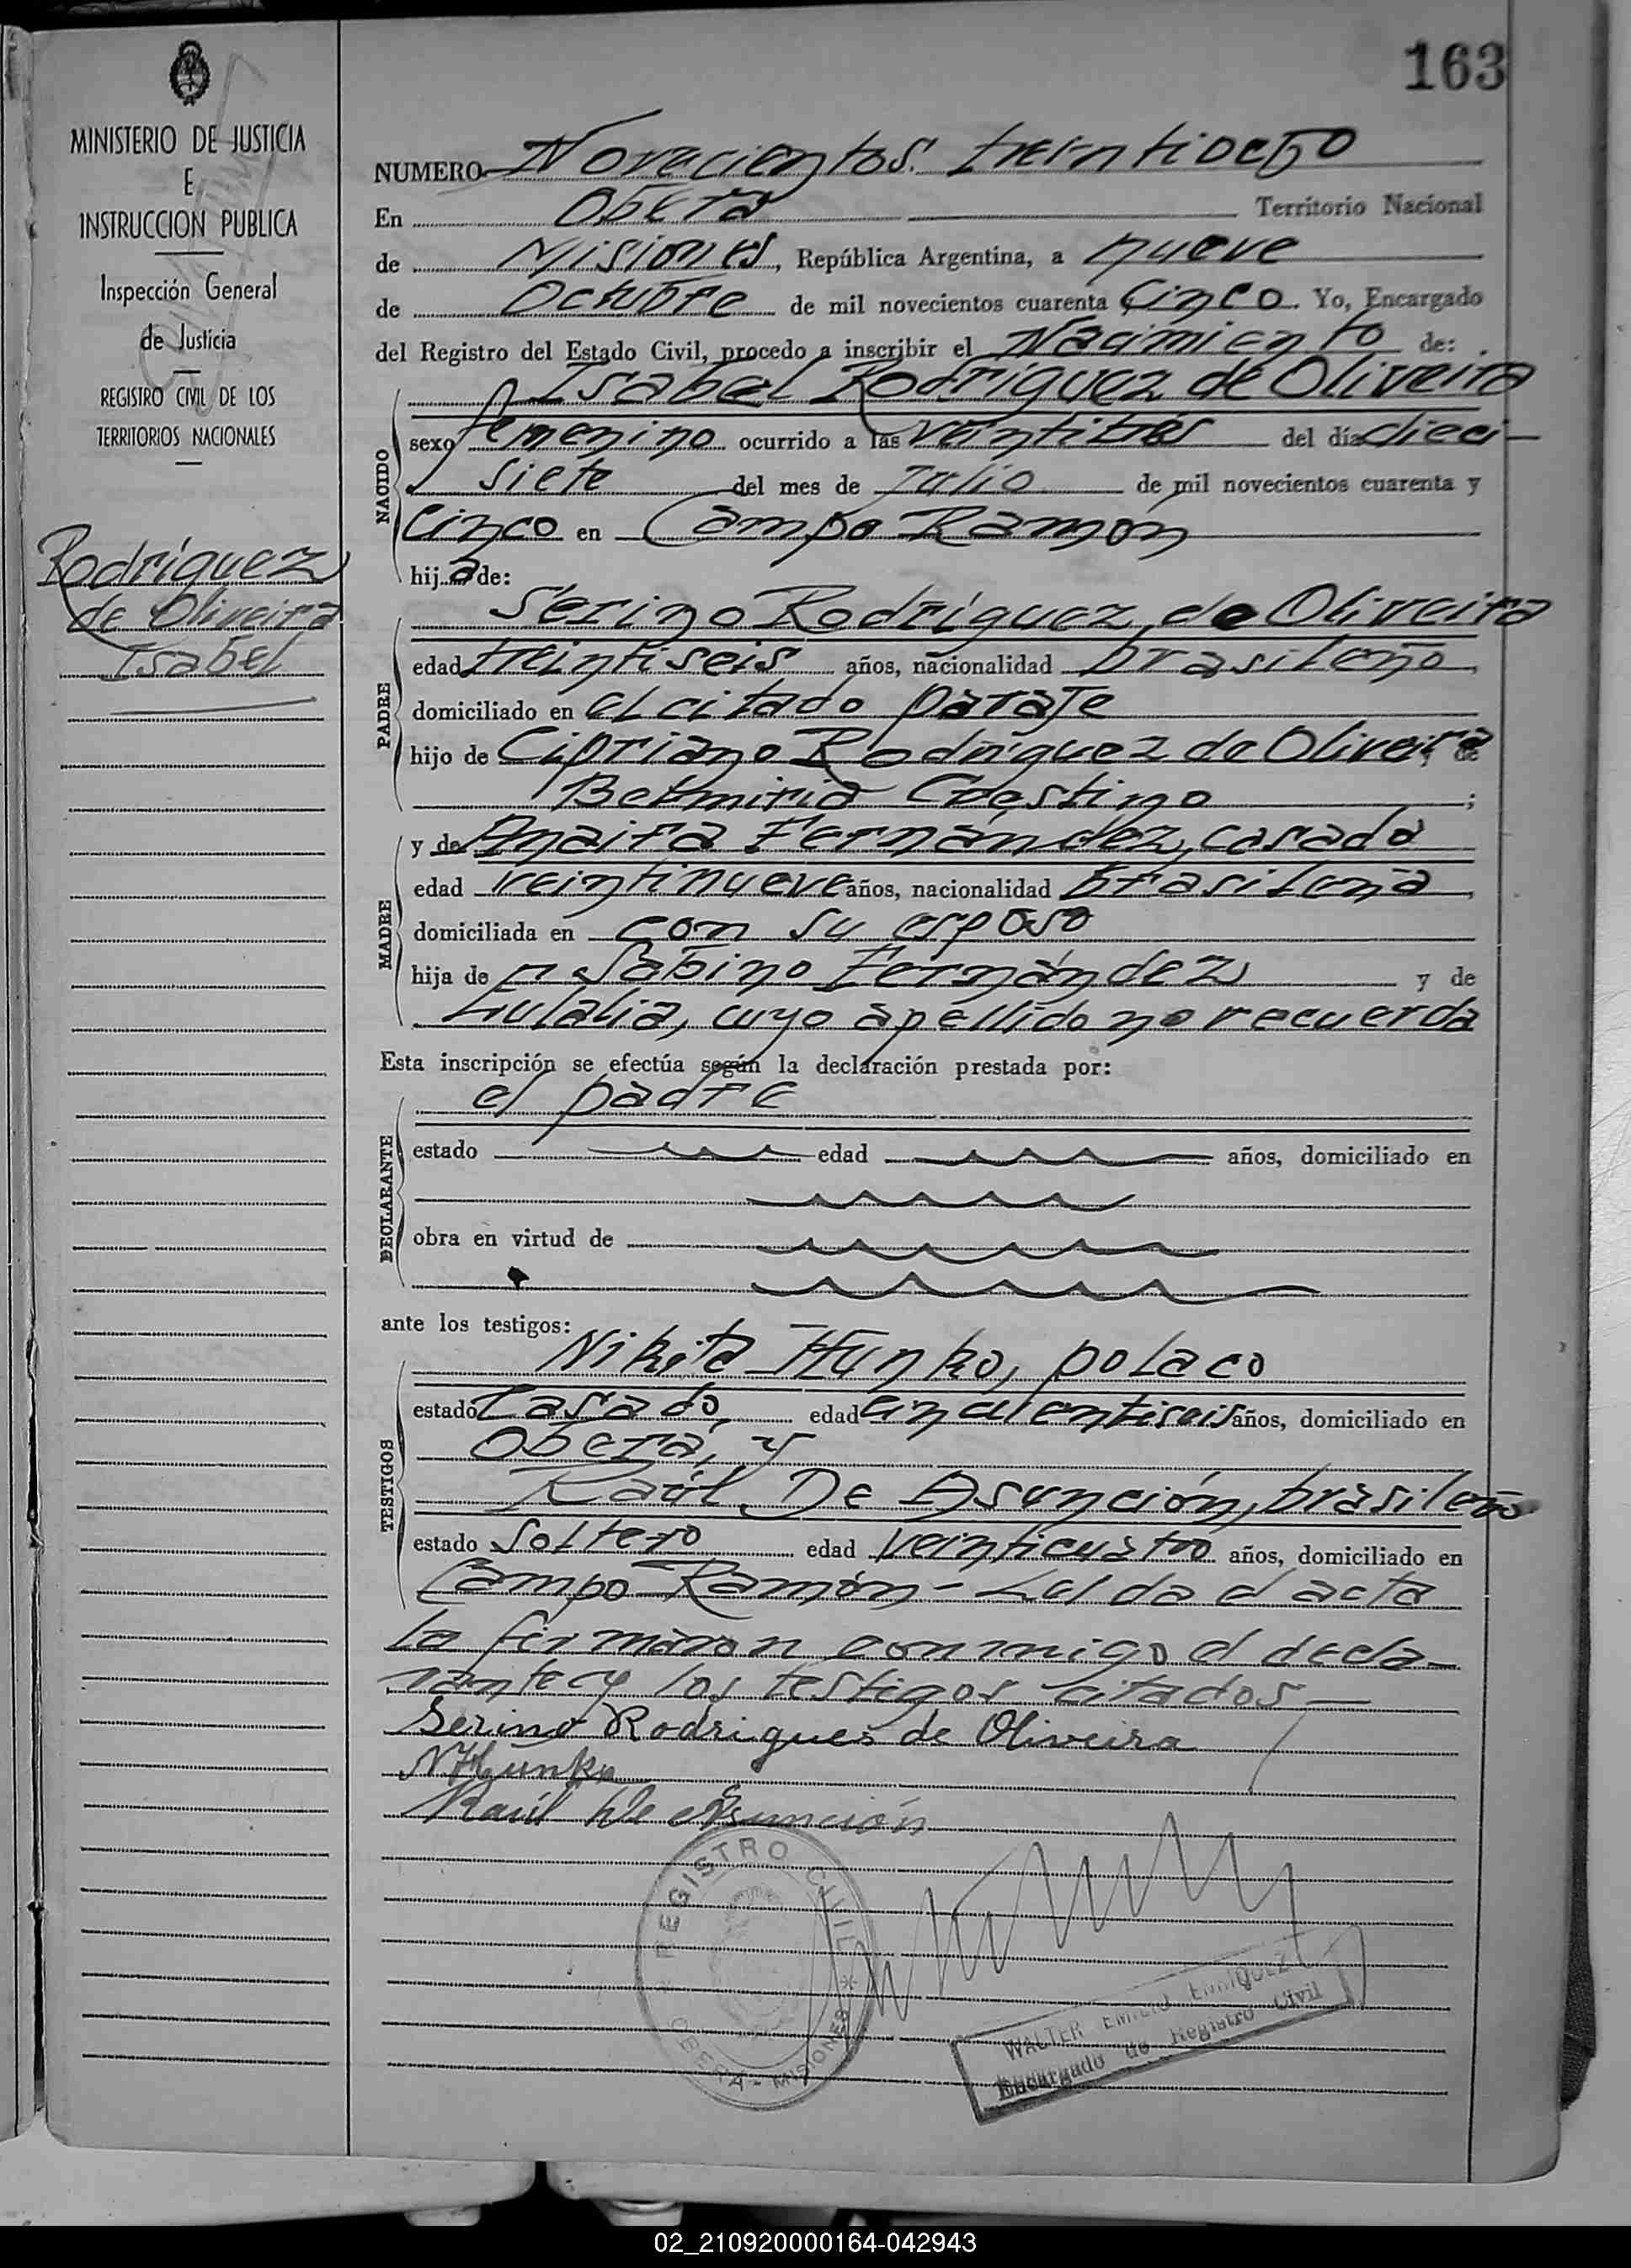 163
MINISTERIO DE JUSTICIA
E
INSTRUCCION PUBLICA
Inspección General
de Justicia
REGISTRO CIVIL DE LOS
TERRITORIOS NACIONALES
Rodríguez
de Oliveira
Isabel
NUMERO Novecientos treintiocho
En Oberá Territorio Nacional
de Misiones, República Argentina, a nueve
de Octubre de mil novecientos cuarenta y cinco. Yo, Encargado
del Registro del Estado Civil, procedo a inscribir el Nacimiento de:
Isabel Rodríguez de Oliveira
NACIDO
sexo femenino ocurrido a las veintitres del día dieci-
siete del mes de Julio de mil novecientos cuarenta y
cinco en Campo Ramón
hija de:
PADRE
Serino Rodríguez de Oliveira
edad treintiseis años, nacionalidad brasileño,
domiciliado en el citado paraje
hijo de Cipriano Rodríguez de Oliveira y de
;
MADRE
y de Anaira Fernández, casada
edad veintinueve años, nacionalidad brasileña,
domiciliada en con su esposo
hija de Sabino Fernández y de
Eulalia, cuyo apellido no recuerda
Esta inscripción se efectúa según la declaración prestada por:
DECLARANTE
el padre
estado edad años, domiciliado en
obra en virtud de
ante los testigos:
TESTIGOS
Nikita Hunko, polaco
estado casado, edad cincuentiseis años, domiciliado en
Oberá, y
Raúl De Asunción, brasileño
estado soltero edad veinticuatro años, domiciliado en
Campo Ramón - Leída el acta
la firmaron conmigo el decla-
rante y los testigos citados -
Serino Rodrigues de Oliveira
N. Hunko
Raúl De Asunción
REGISTRO CIVIL
OBERA - MISIONES
WALTER EMILIO ENRIQUEZ
Encargado de Registro Civil
02_210920000164-042943